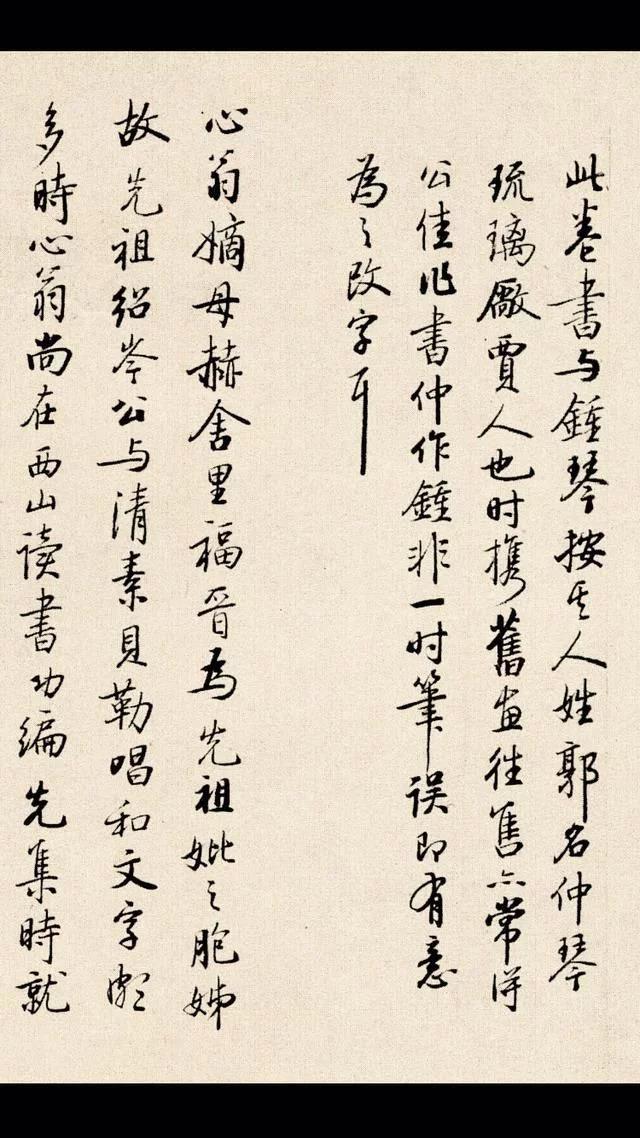 此卷書与鍾琴按其人姓郭名仲琴
琉璃厰賈人也时携舊畫往售亦常得
公佳作書仲作鍾非一时筆误即有意
為之改字耳
心翁嫡母赫舍里福晋为先祖妣之胞姊
故先祖绍岑公与清素貝勒唱和文字頗
多時心翁尚在西山读書功編先集時就